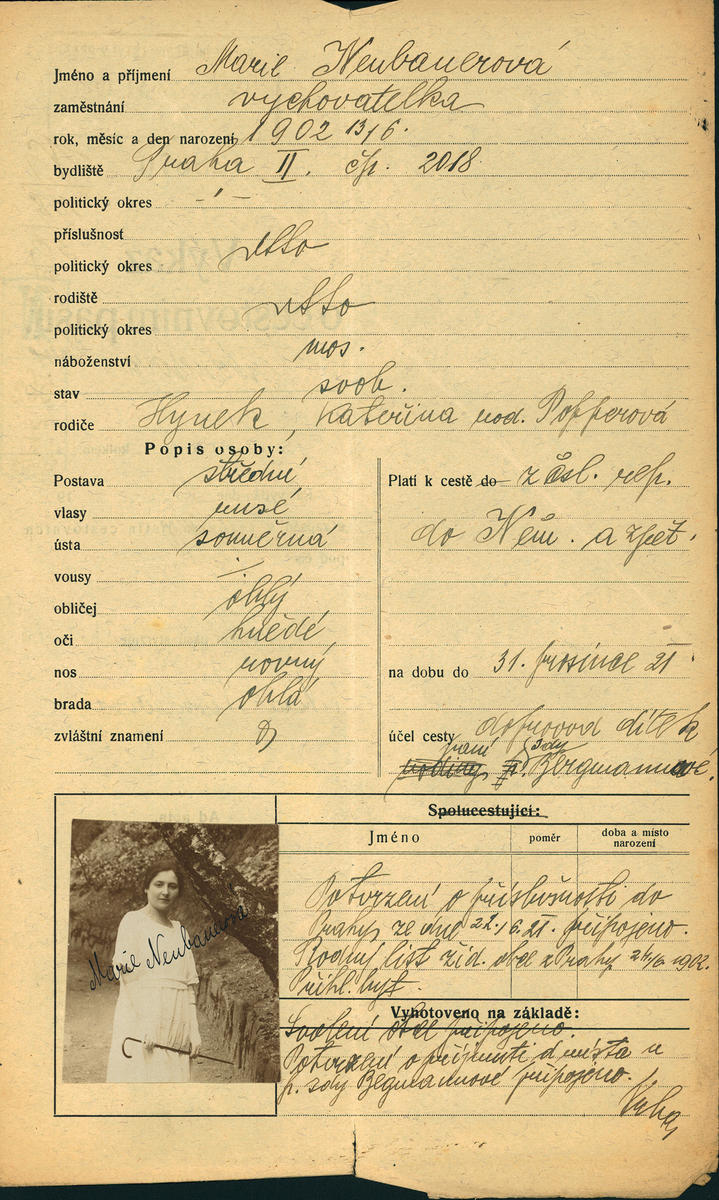 Jméno a příjmení Marie Neubauerová
zaměstnání vychovatelka
rok, měsíc a den narození 1902 13/6.
bydliště Praha II. čp. 2018.
politický okres -"-
příslušnost
politický okres detto
rodiště
politický okres detto
náboženství mos.
stav svob.
rodiče Hynek, Kateřina roz. Popperová
Popis osoby:
Postava střední
vlasy rusé
ústa souměrná
vousy —
obličej oblý
oči hnědé
nos rovný
brada oblá
zvláštní znamení
Platí k cestě do z čsl. rep.
do Něm. a zpět.
na dobu do 31. prosince 21
účel cesty doprovod dítek
paní sdy
rodiny p. Bergmannové.
Spolucestující:
Jméno poměr doba a místo narození
Potvrzení o příslušnosti do
Prahy ze dne 22./6. 21. připojeno.
Rodný list žid. obce z Prahy 24/6 1902.
Přihl. byt.
Vyhotoveno na základě:
Svolení otce připojeno.
Potvrzení o přijmutí d místa u
p. sdy Begmannové připojeno.
Marie Neubauerová